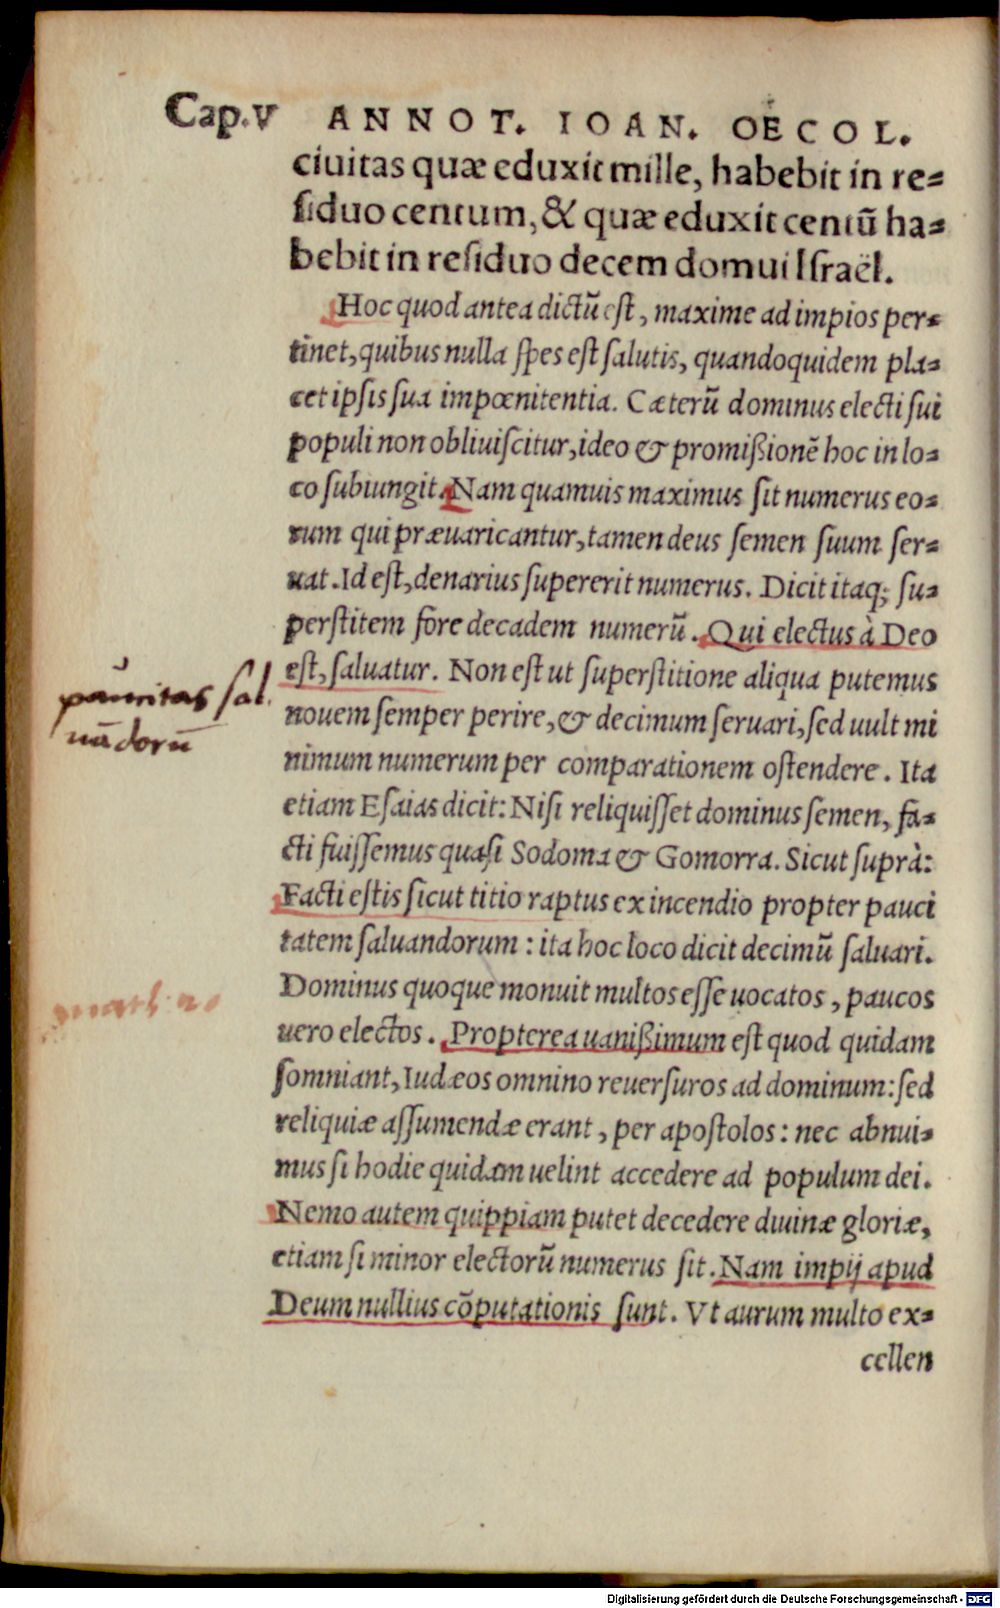 Cap.V ANNOT. IOAN. OECOL.
ciuitas quæ eduxit mille, habebit in re=
siduo centum, & quæ eduxit centũ ha=
bebit in residuo decem domui Israël.
Hoc quod antea dictũ est, maxime ad impios per=
tinet, quibus nulla spes est salutis, quandoquidem pla=
cet ipsis sua impœnitentia. Cæterũ dominus electi sui
populi non obliuiscitur, ideo & promißionẽ hoc in lo=
co subiungit. Nam quamuis maximus sit numerus eo=
rum qui præuaricantur, tamen deus semen suum ser=
uat. Id est, denarius supererit numerus. Dicit itaq; su=
perstitem fore decadem numerũ. Qui electus à Deo
est, saluatur. Non est ut superstitione aliqua putemus
nouem semper perire, & decimum seruari, sed uult mi
nimum numerum per comparationem ostendere. Ita
etiam Esaias dicit: Nisi reliquisset dominus semen, fa=
cti fuissemus quasi Sodoma & Gomorra. Sicut suprà:
Facti estis sicut titio raptus ex incendio propter pauci
tatem saluandorum: ita hoc loco dicit decimũ saluari.
Dominus quoque monuit multos esse uocatos, paucos
uero electos. Propterea uanißimum est quod quidam
somniant, Iudæos omnino reuersuros ad dominum: sed
reliquiæ assumendæ erant, per apostolos: nec abnui=
mus si hodie quidam uelint accedere ad populum dei.
Nemo autem quippiam putet decedere diuinæ gloriæ,
etiam si minor electorũ numerus sit. Nam impij apud
Deum nullius cõputationis sunt. Vt aurum multo ex=
cellen
paucitas sal
uãdorũ
math. 20
Digitalisierung gefördert durch die Deutsche Forschungsgemeinschaft - DFG